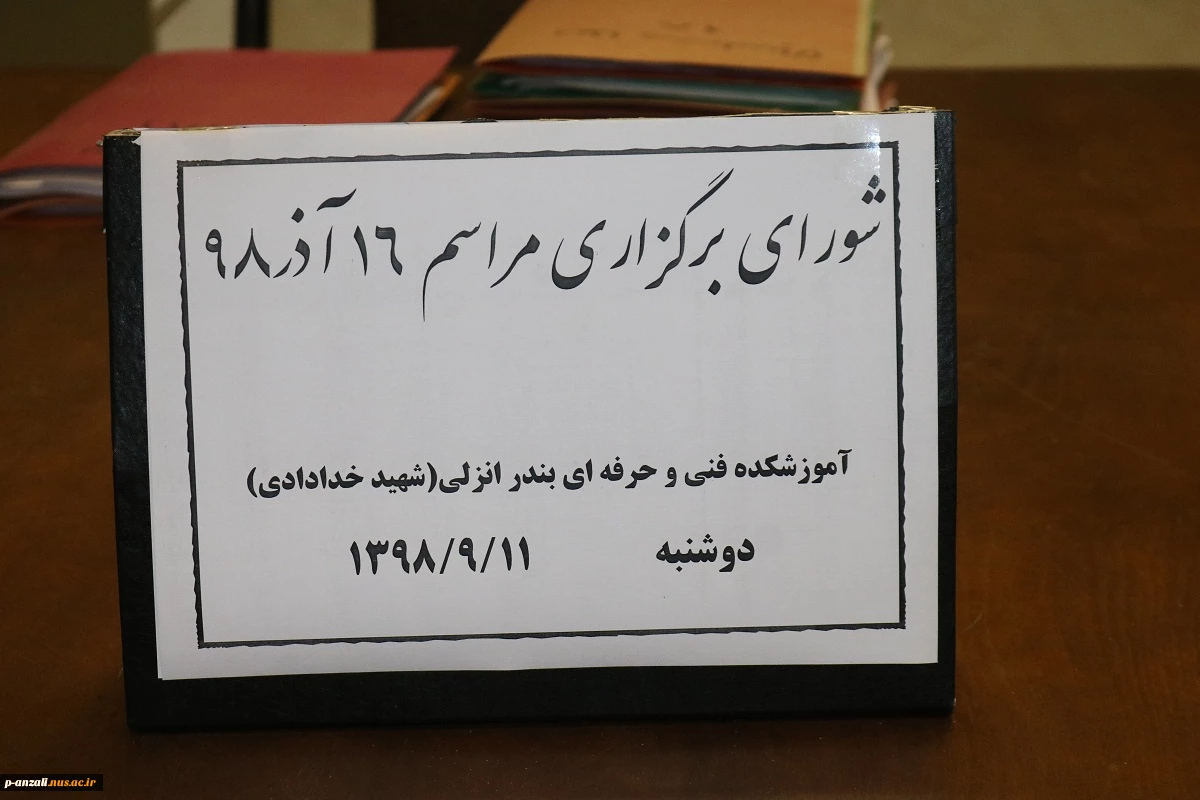 شورای برگزاری مراسم ۱۶ آذر ۹۸
آموزشکده فنی و حرفه ای بندر انزلی(شهید خدادادی)
دوشنبه ۱۳۹۸/۹/۱۱
p-anzali.nus.ac.ir